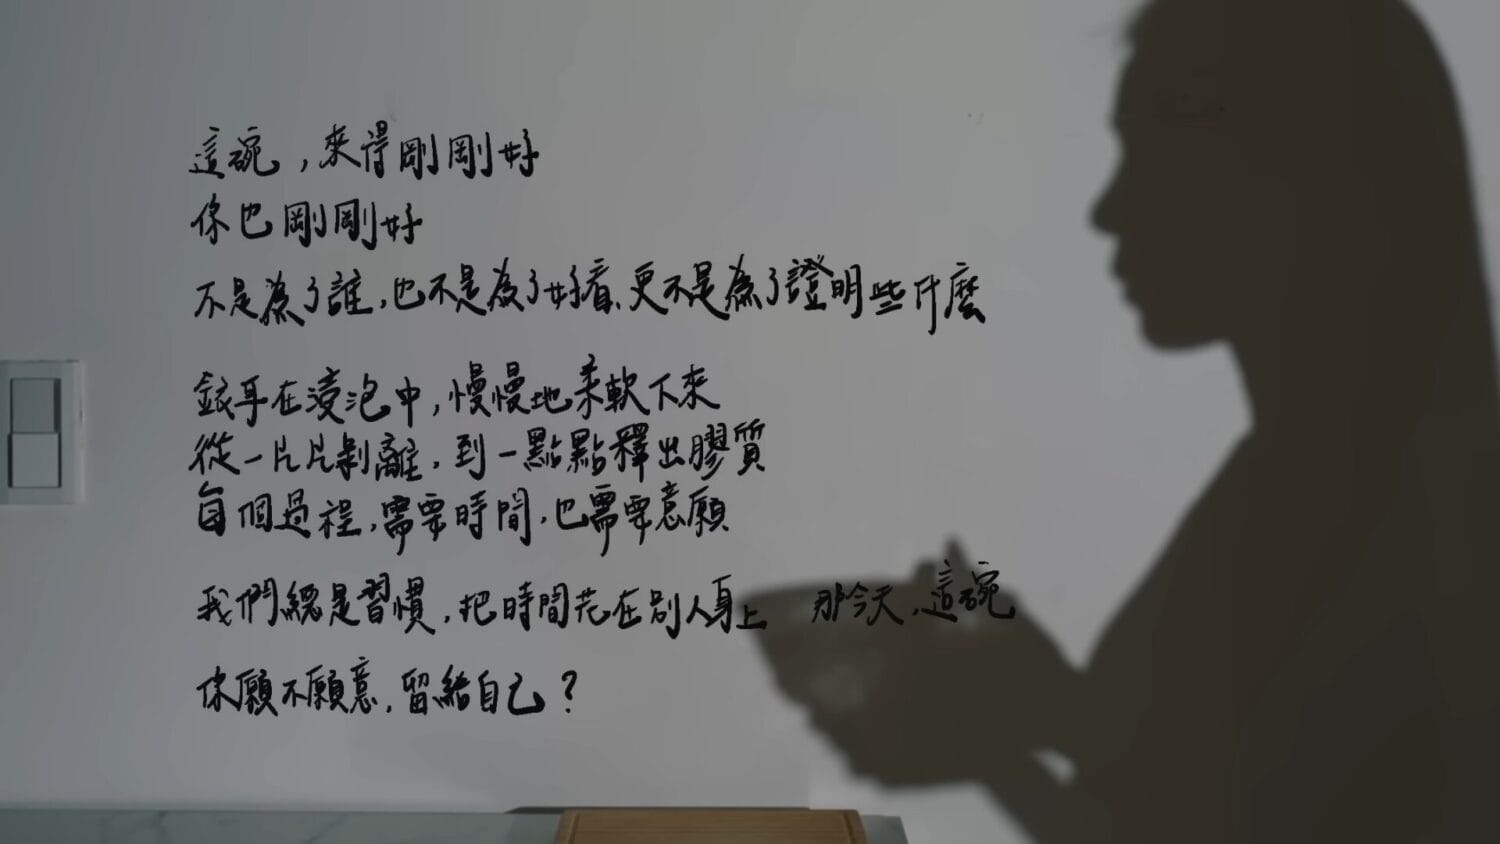 這碗，來得剛剛好
你也剛剛好
不是為了誰，也不是為了好看、更不是為了證明些什麼
銀耳在浸泡中，慢慢地柔軟下來
從一片片剝離，到一點點釋出膠質
每個過程，需要時間，也需要意願
我們總是習慣，把時間花在別人身上 那今天，這碗
你願不願意，留給自己？